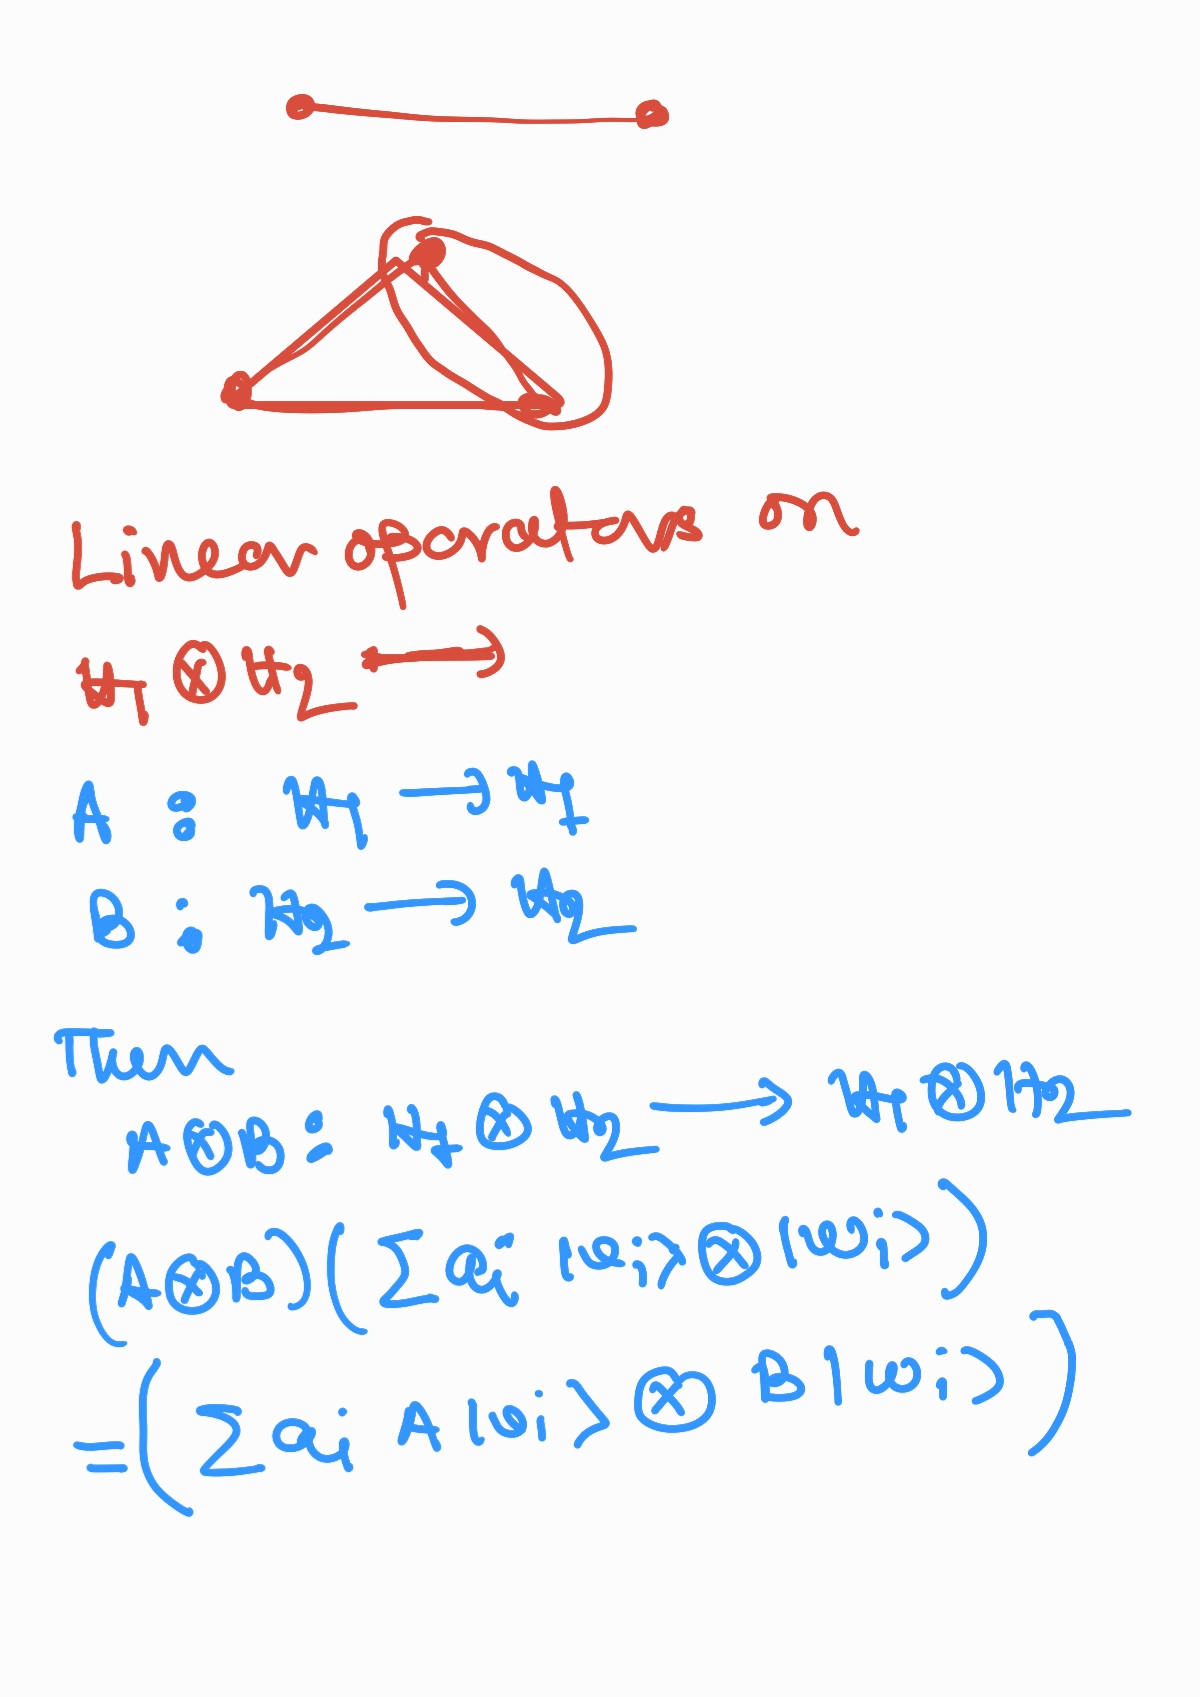 Linear operators on
H₁ ⊗ H₂ ⟶
A : H₁ ⟶ H₁
B : H₂ ⟶ H₂
Then
A⊗B : H₁ ⊗ H₂ ⟶ H₁ ⊗ H₂
(A⊗B)(∑ aᵢ |vᵢ⟩ ⊗ |wᵢ⟩)
= (∑ aᵢ A|vᵢ⟩ ⊗ B|wᵢ⟩)